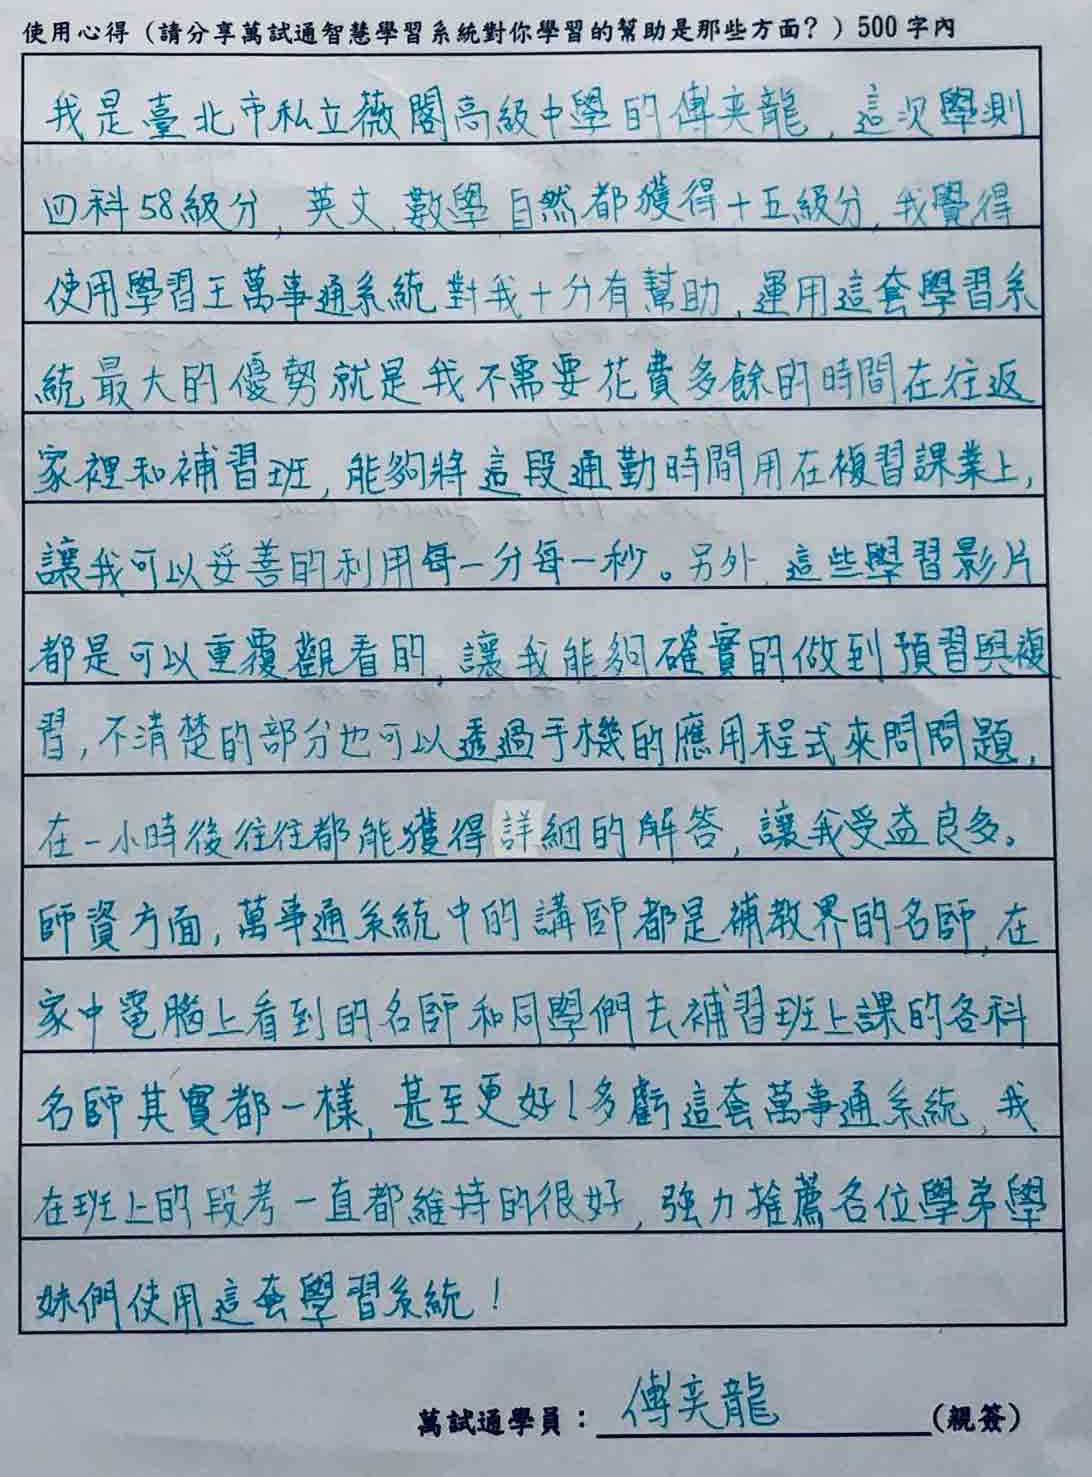 使用心得（請分享萬試通智慧學習系統對你學習的幫助是那些方面？）500字內
我是臺北市私立薇閣高級中學的傅奕龍，這次學測
四科58級分，英文、數學、自然都獲得十五級分，我覺得
使用學習王萬事通系統對我十分有幫助，運用這套學習系
統最大的優勢就是我不需要花費多餘的時間在往返
家裡和補習班，能夠將這段通勤時間用在複習課業上，
讓我可以妥善的利用每一分每一秒。另外，這些學習影片
都是可以重覆觀看的，讓我能夠確實的做到預習與複
習，不清楚的部分也可以透過手機的應用程式來問問題，
在一小時後往往都能獲得詳細的解答，讓我受益良多。
師資方面，萬事通系統中的講師都是補教界的名師，在
家中電腦上看到的名師和同學們去補習班上課的各科
名師其實都一樣，甚至更好！多虧這套萬事通系統，我
在班上的段考一直都維持的很好，強力推薦各位學弟學
妹們使用這套學習系統！
萬試通學員：傅奕龍（親簽）